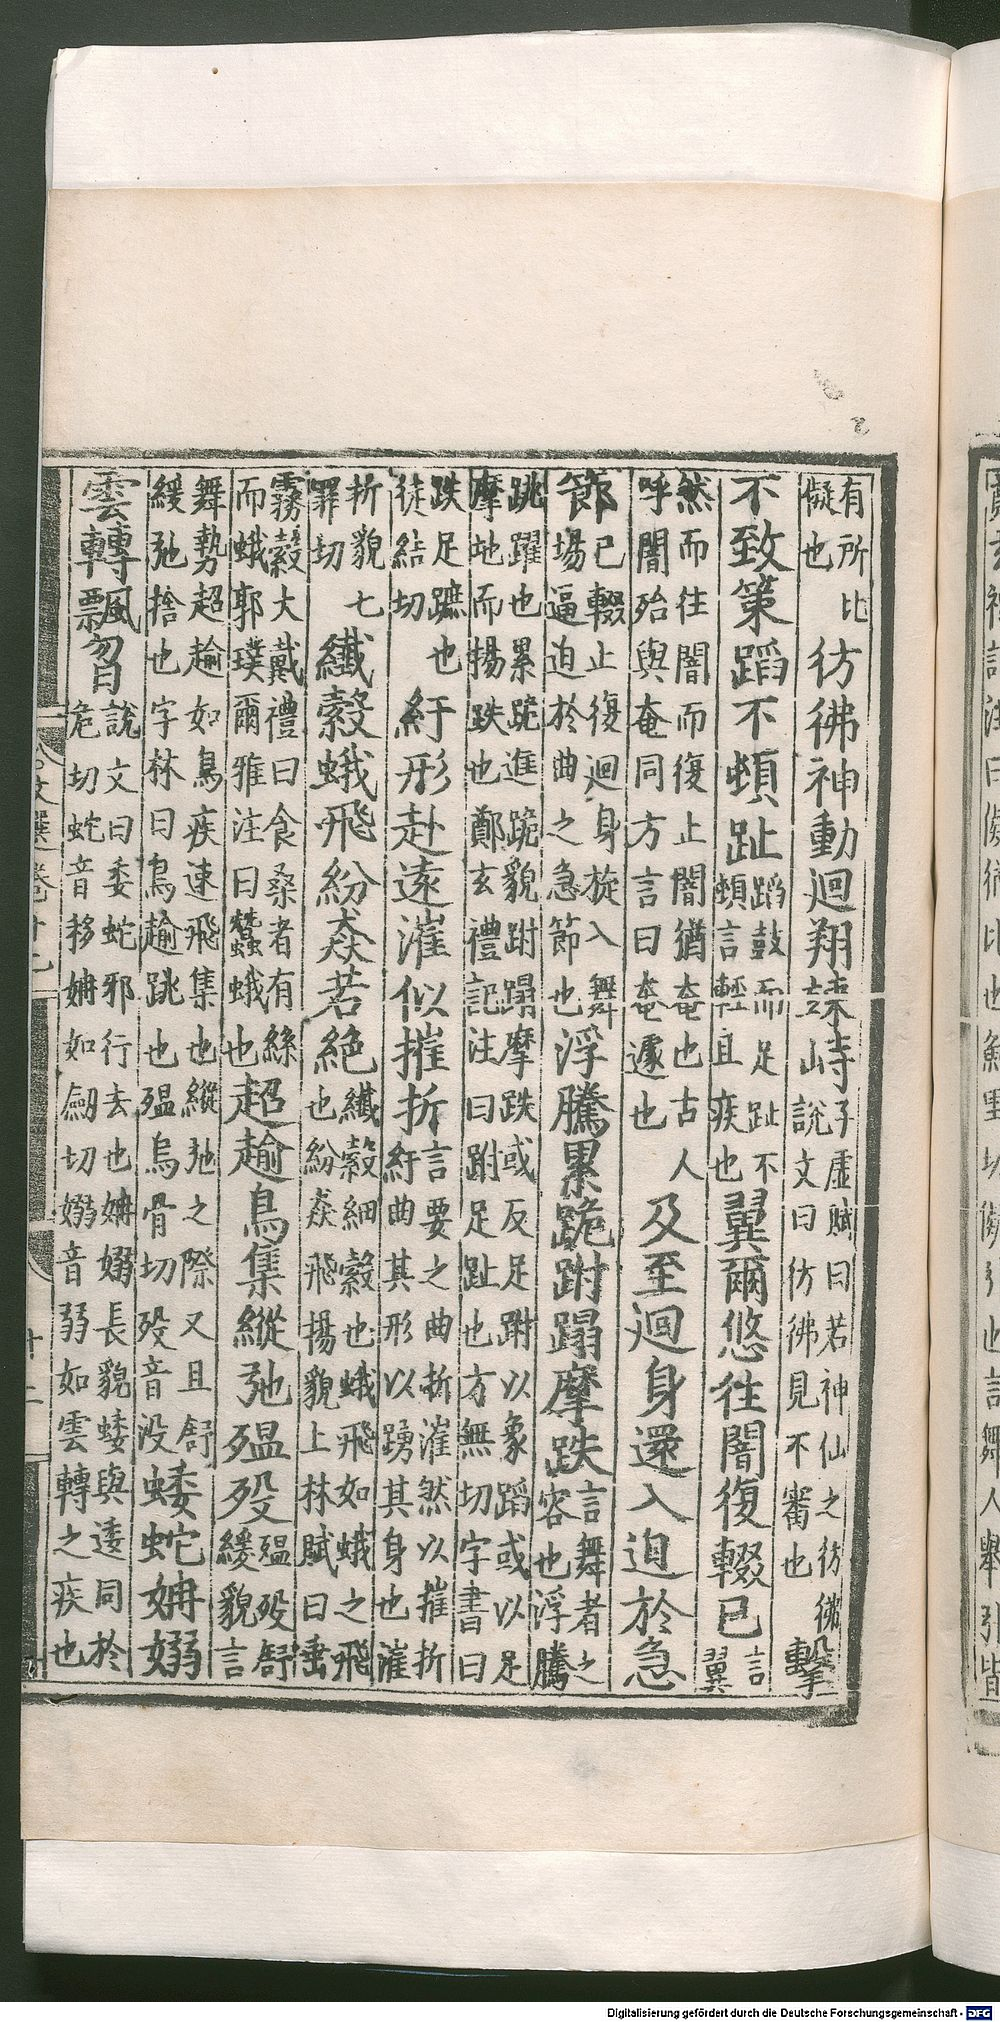 有所比
儗也
彷彿神動迴翔竦峙
子虛賦曰若神仙之彷彿
說文曰彷彿見不審也
擊
不致策蹈不頓趾
蹈鼓而足趾不
頓言輕且疾也
翼爾悠往闇復輟已
言
翼
然而往闇而復止闇猶奄也古人
呼闇殆與奄同方言曰奄遽也
及至迴身還入迫於急
節
已輟止復迴身旋入舞
場逼迫於曲之急節也
浮騰累跪跗蹋摩跌
言舞者之
容也浮騰
跳躍也累跪進跪貌跗蹋摩跌或反足跗以象蹈或以足
摩地而揚跌也鄭玄禮記注曰跗足趾也方無切字書曰
跌足蹠也
徒結切
紆形赴遠漼似摧折
言要之曲折漼然以摧折
紆曲其形以踴其身也漼
折貌七
罪切
纖縠蛾飛紛猋若絕
纖縠細縠也蛾飛如蛾之飛
也紛猋飛揚貌上林賦曰垂
霧縠大戴禮曰食桑者有絲
而蛾郭璞爾雅注曰蠶蛾也
超𧼯鳥集縱弛殟歿
殟歿舒
緩貌言
舞勢超𧼯如鳥疾速飛集也縱弛之際又且舒
緩弛捨也字林曰鳥𧼯跳也殟烏骨切歿音没
蜲蛇姌嫋
雲轉飄曶
說文曰委蛇邪行去也姌嫋長貌蜲與逶同於
危切蛇音移姌如劔切嫋音弱如雲轉之疾也
文選卷十七
十二
Digitalisierung gefördert durch die Deutsche Forschungsgemeinschaft - DFG